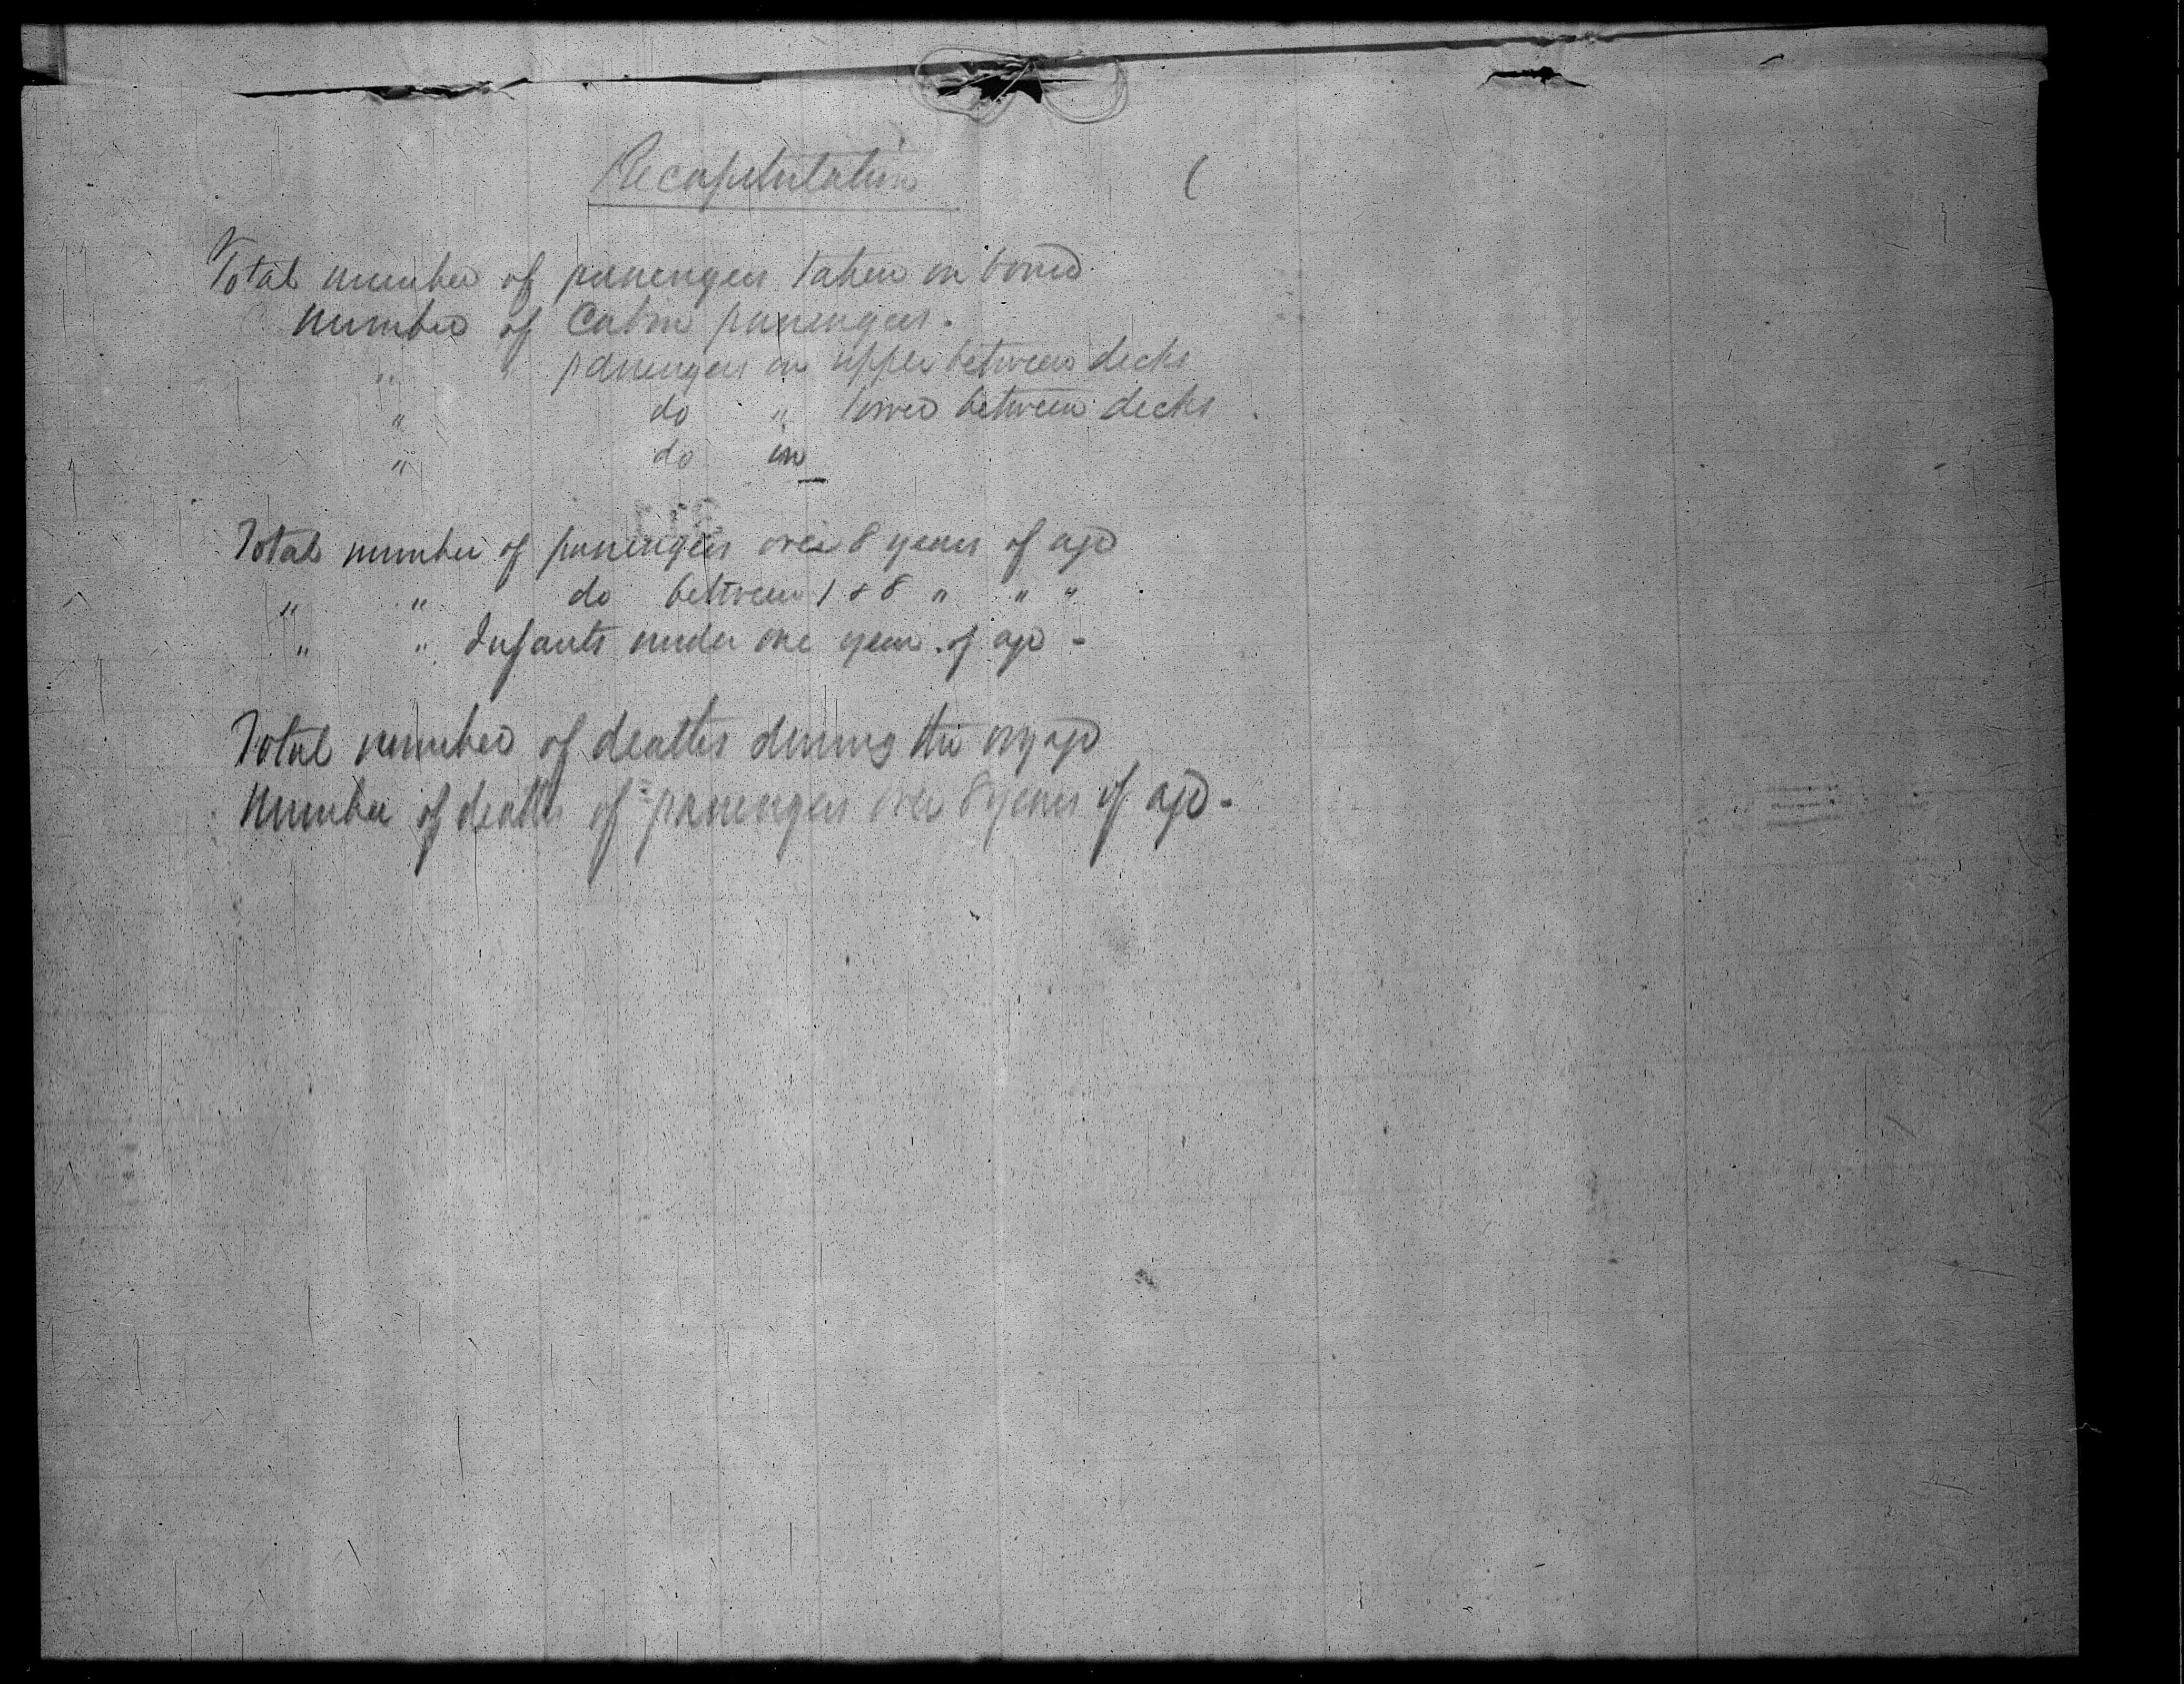 Recapitulation
Total number of passengers taken on board
Number of Cabin passengers.
" " passengers on upper between decks
" do " lower between decks
" do in
Total number of passengers over 8 years of age
" " do between 1 & 8 " " "
" " Infants under one year of age -
Total number of deaths during the voyage
Number of deaths of passengers over 8 years of age -